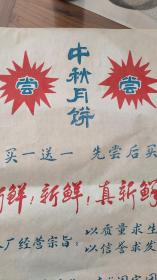 尝 中秋月饼 尝
买一送一 先尝后买
新鲜!新鲜!真新鲜
厂经营宗旨:
以质量求生
以信誉求发